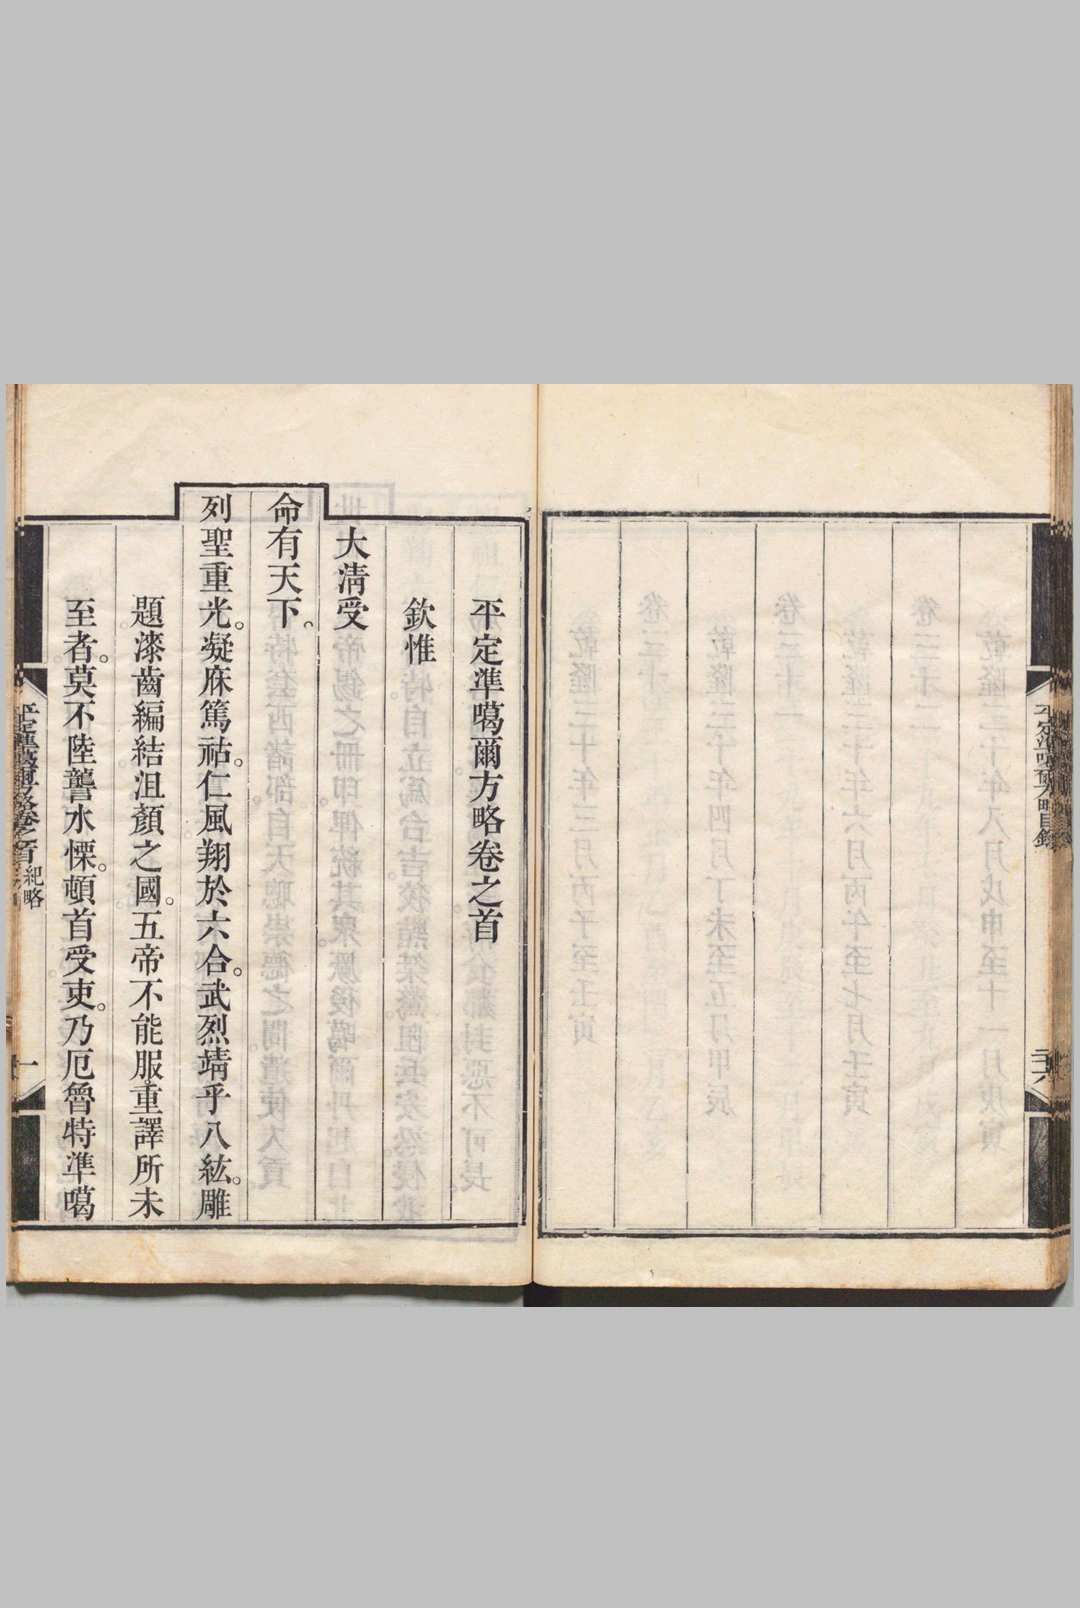 平定準噶爾方略目錄
平定準噶爾方略卷之首
欽惟
大淸受
命有天下。
列聖重光。凝庥篤祜。仁風翔於六合。武烈靖乎八紘。雕
題漆齒編結沮顏之國。五帝不能服。重譯所未
至者。莫不陸讋水慄。頓首受吏。乃厄魯特準噶
平定準噶爾方略卷之首 紀略 一